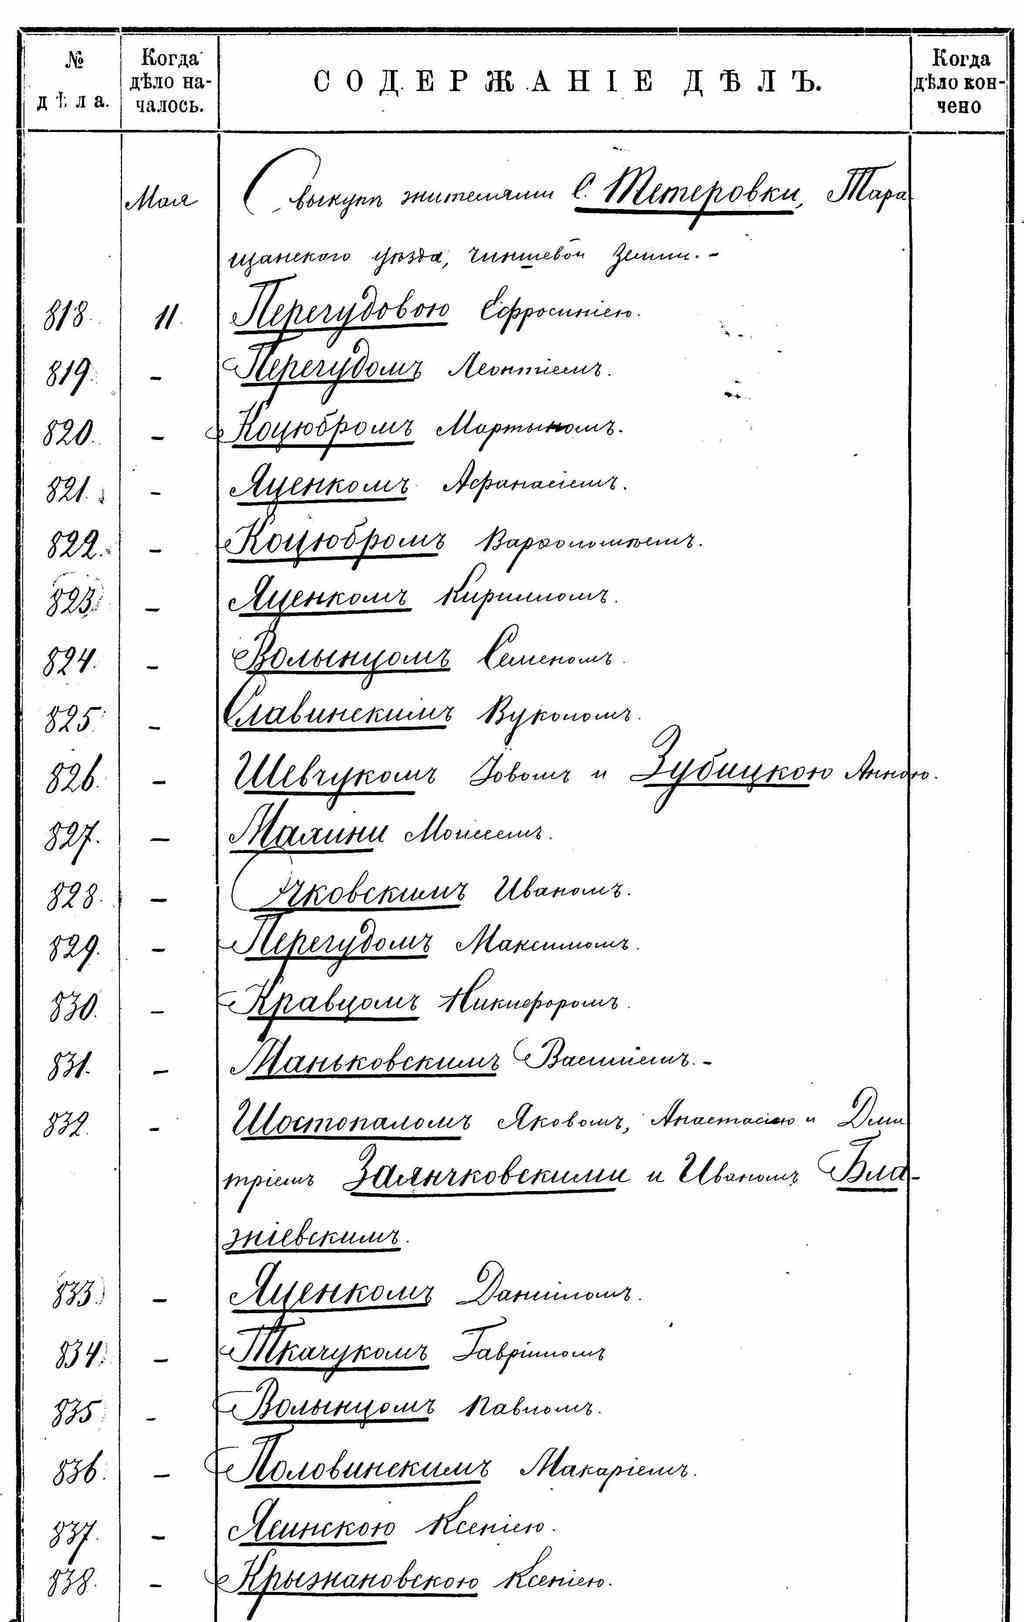 № дѣла. Когда дѣло началось. СОДЕРЖАНІЕ ДѢЛЪ. Когда дѣло кончено
Мая О выкупѣ жителями с. Тетеровки, Тара
щанскаго уѣзда, чиншевой земли. -
818. 11. Перегудовою Ефросиніею.
819. - Перегудомъ Леонтіемъ.
820. - Коцюбромъ Мартыномъ.
821. - Яценкомъ Афанасіемъ.
822. - Коцюбромъ Варфоломѣемъ.
823. - Яценкомъ Кирилломъ.
824. - Волынцомъ Семеномъ.
825. - Славинскимъ Вуколомъ.
826. - Шевчукомъ Іовомъ и Зубицкою Анною.
827. - Малини Моисеемъ.
828. - Очковскимъ Иваномъ.
829. - Перегудомъ Максимомъ.
830. - Кравцомъ Никифоромъ.
831. - Маньковскимъ Василіемъ. -
832. - Шостопаломъ Яковомъ, Анастасіею и Дми
тріемъ Заянчковскими и Иваномъ Бла-
жіевскимъ.
833. - Яценкомъ Даниломъ.
834. - Ткачукомъ Гавріиломъ
835. - Волынцомъ Павломъ.
836. - Половинскимъ Макаріемъ.
837. - Ясинскою Ксеніею.
838. - Крыжановскою Ксеніею.